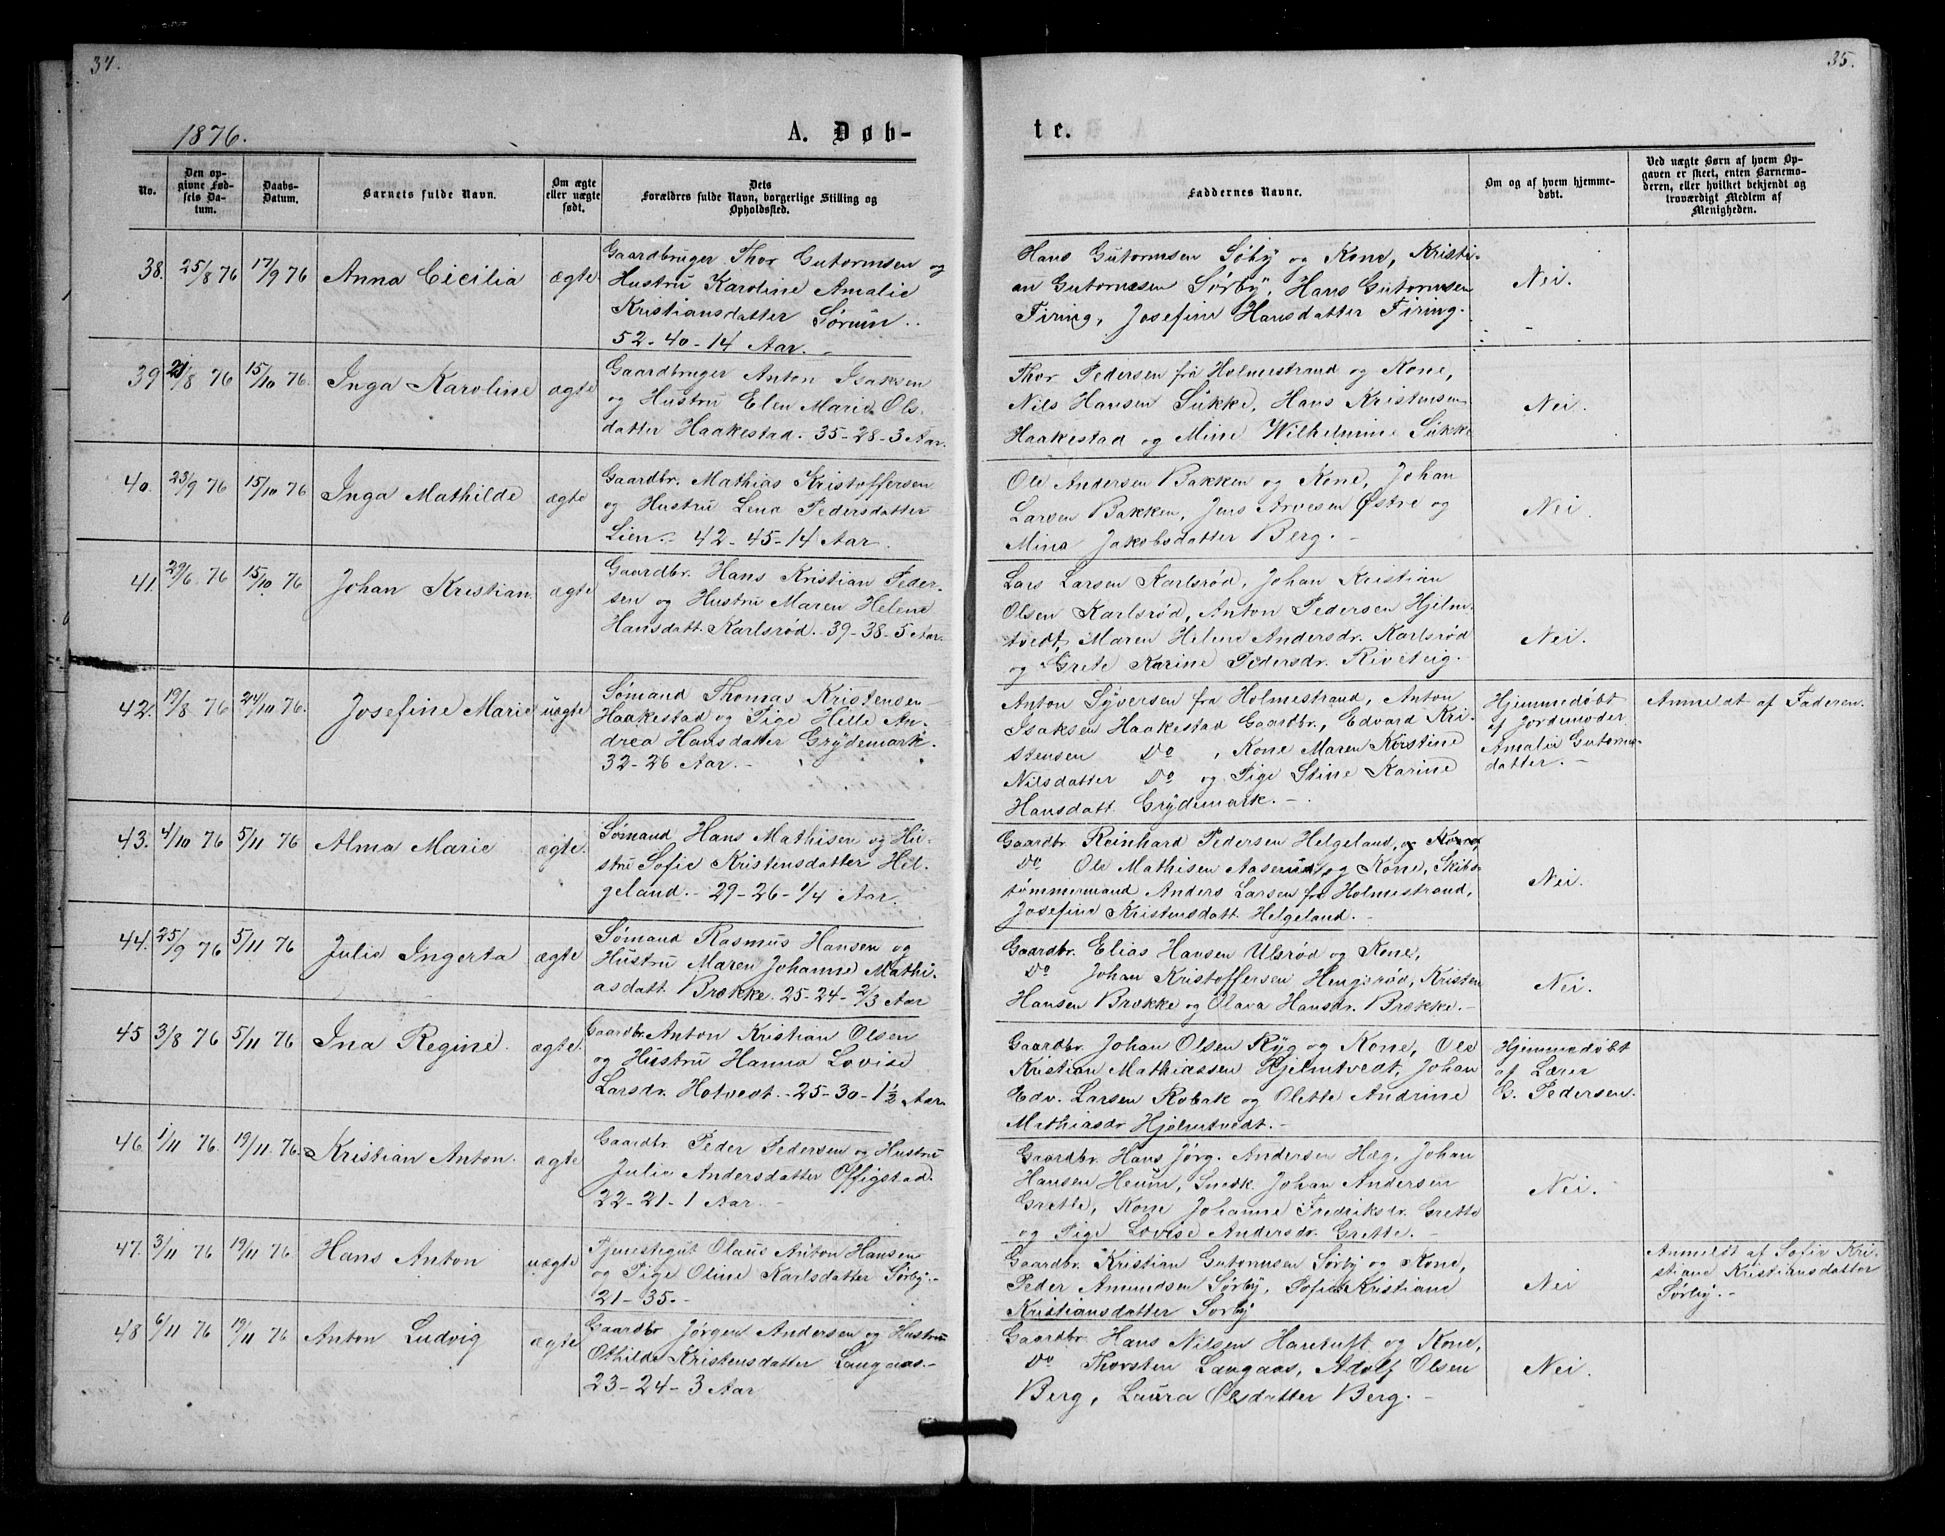 34.
1876.
A. Døb-
No.
Den op-
givne Fød-
sels Da-
tum.
Daabs-
Datum.
Barnets fulde Navn.
Om ægte
eller uægte
født.
Dets
Forældres fulde Navn, borgerlige Stilling og
Opholdssted.
38. 25/8 76 17/9 76 Anna Cicilia ægte
Gaardbruger Thor Gutormsen og
Hustru Karoline Amalie
Kristiansdatter Sørum.
52-40-14 Aar.
39 21/8 76 15/10 76. Inga Karoline ægte
Gaardbruger Anton Isaksen
og Hustru Elen Marie Ols-
datter Haakestad. 35-28-3 Aar.
40. 23/9 76 15/10 76 Inga Mathilde ægte
Gaardbr. Mathias Kristoffersen
og Hustru Lena Pedersdatter
Lien.- 42-45-14 Aar.
41. 29/6 76 15/10 76 Johan Kristian ægte
Gaardbr. Hans Kristian Peder-
sen og Hustru Maren Helene
Hansdatt. Karlsrød. 39-38-5 Aar.
42. 19/8 76 24/10 76. Josefine Marie uægte
Sømand Thomas Kristensen
Haakestad og Pige Helle An-
drea Hansdatter Grydemark.
32-26 Aar.-
43. 4/10 76 5/11 76 Alma Marie ægte.
Sømand Hans Mathisen og Hu-
stru Sofie Kristensdatter Hel-
geland.- 29-26-1/4 Aar.
44. 25/9 76 5/11 76 Julie Ingerta ægte
Sømand Rasmus Hansen og
Hustru Maren Johanne Mathi-
asdatt. Brekke. 25-24-2/3 Aar
45 3/8 76 5/11 76 Ina Regine. ægte.
Gaardbr. Anton Kristian Olsen
og Hustru Hanna Lovise
Larsdr. Hotvedt.- 25-30-1½ Aar.
46. 1/11 76. 19/11 76. Kristian Anton. ægte
Gaardbr. Peder Pedersen og Hustru
Julie Andersdatter Offigstad.
22-21-1 Aar.-
47. 3/11 76 19/11 76 Hans Anton uægte
Tjenestegut Olaus Anton Hansen
og Pige Oline Karlsdatter Sørby.-
21-35.-
48 6/11 76 19/11 76 Anton Ludvig ægte
Gaardbr Jørgen Andersen og Hustru
Othilde Kristensdatter Langaas.-
23-24-3 Aar
35.
te.
Faddernes Navne.
Om og af hvem hjemme-
døbt.
Ved uægte Børn af hvem Op-
gaven er skeet, enten Barnemo-
deren, eller hvilket bekjendt og
troværdigt Medlem af
Menigheden.
Hans Gutormsen Søby og Kone, Kristi-
an Gutormsen Sørby, Hans Gutormsen
Firing, Josefine Hansdatter Firing.
Nei.
Thor Pedersen fra Holmestrand og Kone,
Nils Hansen Sukke, Hans Kristensen
Haakestad og Mine Wilhelmine Sukke
Nei.
Ole Andersen Bakken og Kone, Johan
Larsen Bakken, Jens Arvesen Østre og
Mina Jakobsdatter Berg.-
Nei.
Lars Larsen Karlsrød, Johan Kristian
Olsen Karlsrød, Anton Pedersen Hjelm-
tvedt, Maren Helene Andersdr. Karlsrød
og Grete Karine Pedersdr. Riveteig.
Nei.
Anton Syversen fra Holmestrand, Anton
Isaksen Haakestad Gaardbr., Edvard Kri-
stensen Do, Kone Maren Kristine
Nilsdatter Do og Pige Stine Karine
Hansdatt. Grydemark.-
Hjemmedøbt
af Jordemoder
Amalie Gutorms-
datter.-
Anmeldt af Faderen.
Gaardbr. Reinhard Pedersen Helgeland, og Kone,
Do Ole Mathisen Aaserud og Kone, Skibs-
tømmermand Anders Larsen fra Holmestrand,
Josefine Kristensdatt. Helgeland.-
Nei.
Gaardbr. Elias Hansen Ulsrød og Kone,
Do Johan Kristoffersen Hengsrød, Kristen
Hansen Brekke og Olava Hansdr. Brekke.-
Nei.
Gaardbr. Johan Olsen Ryg og Kone, Ole
Kristian Mathiassen Hjelmtvedt, Johan
Edv. Larsen Robak og Olette Andrine
Mathiasdr Hjelmtvedt.-
Hjemmedøbt
af Lærer
G. Pedersen.
Gaardbr. Hans Jørg. Andersen Hæg, Johan
Hansen Heum, Snedk. Johan Andersen
Grette, Kone Johanne Fredriksdr. Grette
og Pige Lovise Andersdr. Grette.-
Nei.
Gaardbr. Kristian Gutormsen Sørby og Kone,
Peder Amundsen Sørby, Sofie Kristiane
Kristiansdatter Sørby
Nei
Anmeldt af Sofie Kri-
stiane Kristiansdatter
Sørby.-
Gaardbr. Hans Nilsen Haretuft og Kone,
Do Thorsten Langaas, Adolf Olsen
Berg, Laura Olsdatter Berg.-
Nei.